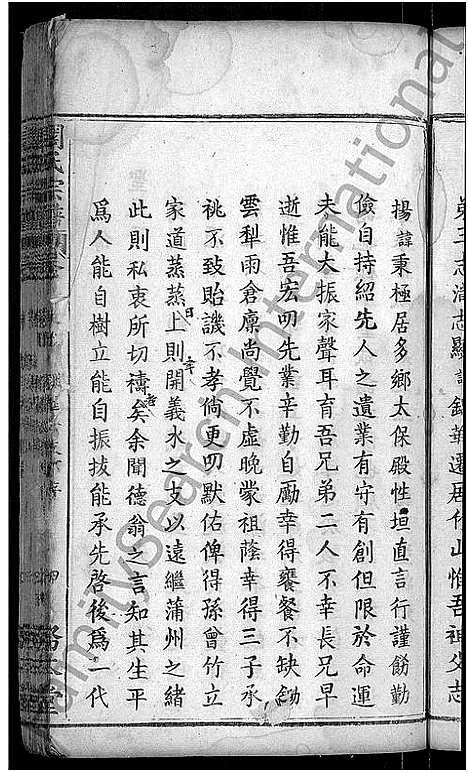 第三志清志顯諱錦華遷居作山惟吾祖父志
揚諱秉極居多鄉太保殿性坦直言行謹飭勤
儉自持紹先人之遺業有守有創但限於命運
未能大振家聲耳育吾兄弟二人不幸長兄早
逝惟吾宏叨先業辛勤自勵幸得饔餐不缺鋤
雲犁雨倉廩尚覺不虛晚蒙祖蔭幸得三子承
祧不致貽譏不孝倘更叨默佑俾得孫曾竹立
家道蒸蒸日上則開義水之支以遠繼蒲州之緒
此則私衷所切禱者矣余聞德翁之言知其生平
為人能自樹立能自振拔能承先啓後為一代
familysearch International